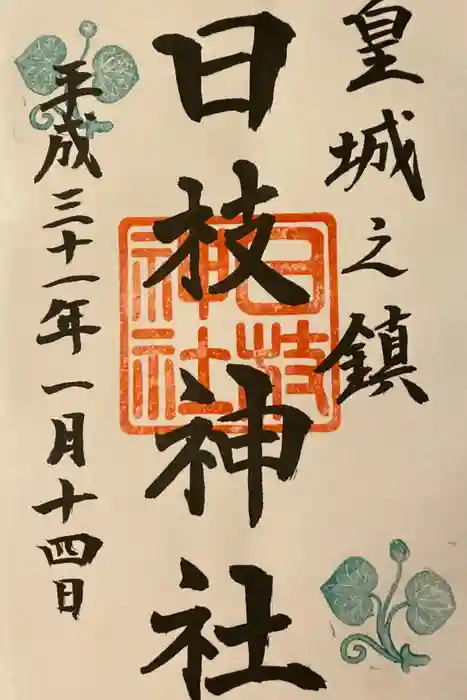 皇城之鎮
日枝神社
日枝神社
平成三十一年一月十四日